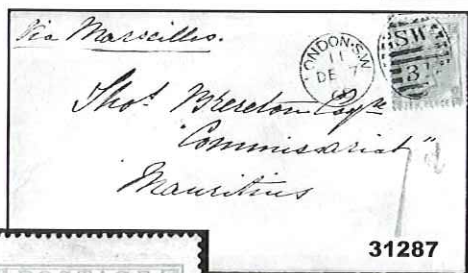 Via Marseilles.
LONDON·S.W
11
DE 7
SW
3
Thos. Brereton Esqre
"Commissariat"
Mauritius
31287
POSTAGE